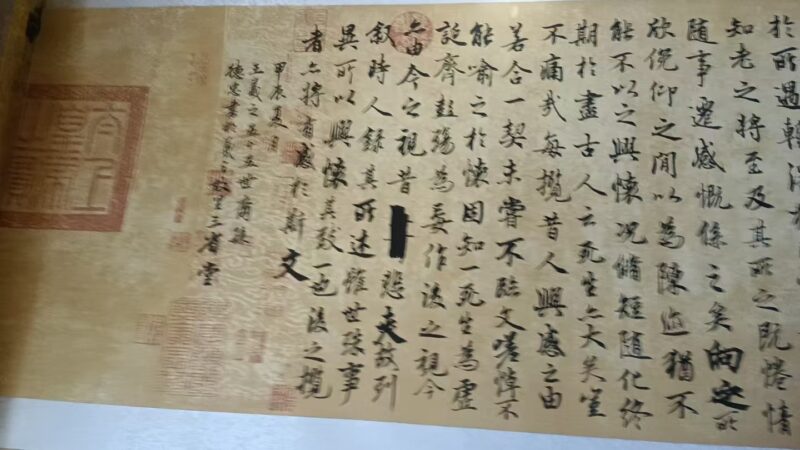 於所遇輒
知老之將至及其所之既惓情
隨事遷感慨係之矣向之所
欣俛仰之閒以為陳迹猶不
能不以之興懷況脩短隨化終
期於盡古人云死生亦大矣豈
不痛哉每攬昔人興感之由
若合一契未嘗不臨文嗟悼不
能喻之於懷固知一死生為虛
誕齊彭殤為妄作後之視今
亦由今之視昔悲夫故列
敘時人錄其所述雖世殊事
異所以興懷其致一也後之攬
者亦將有感於斯文
甲辰夏月
王羲之五十五世裔孫
書於三省堂